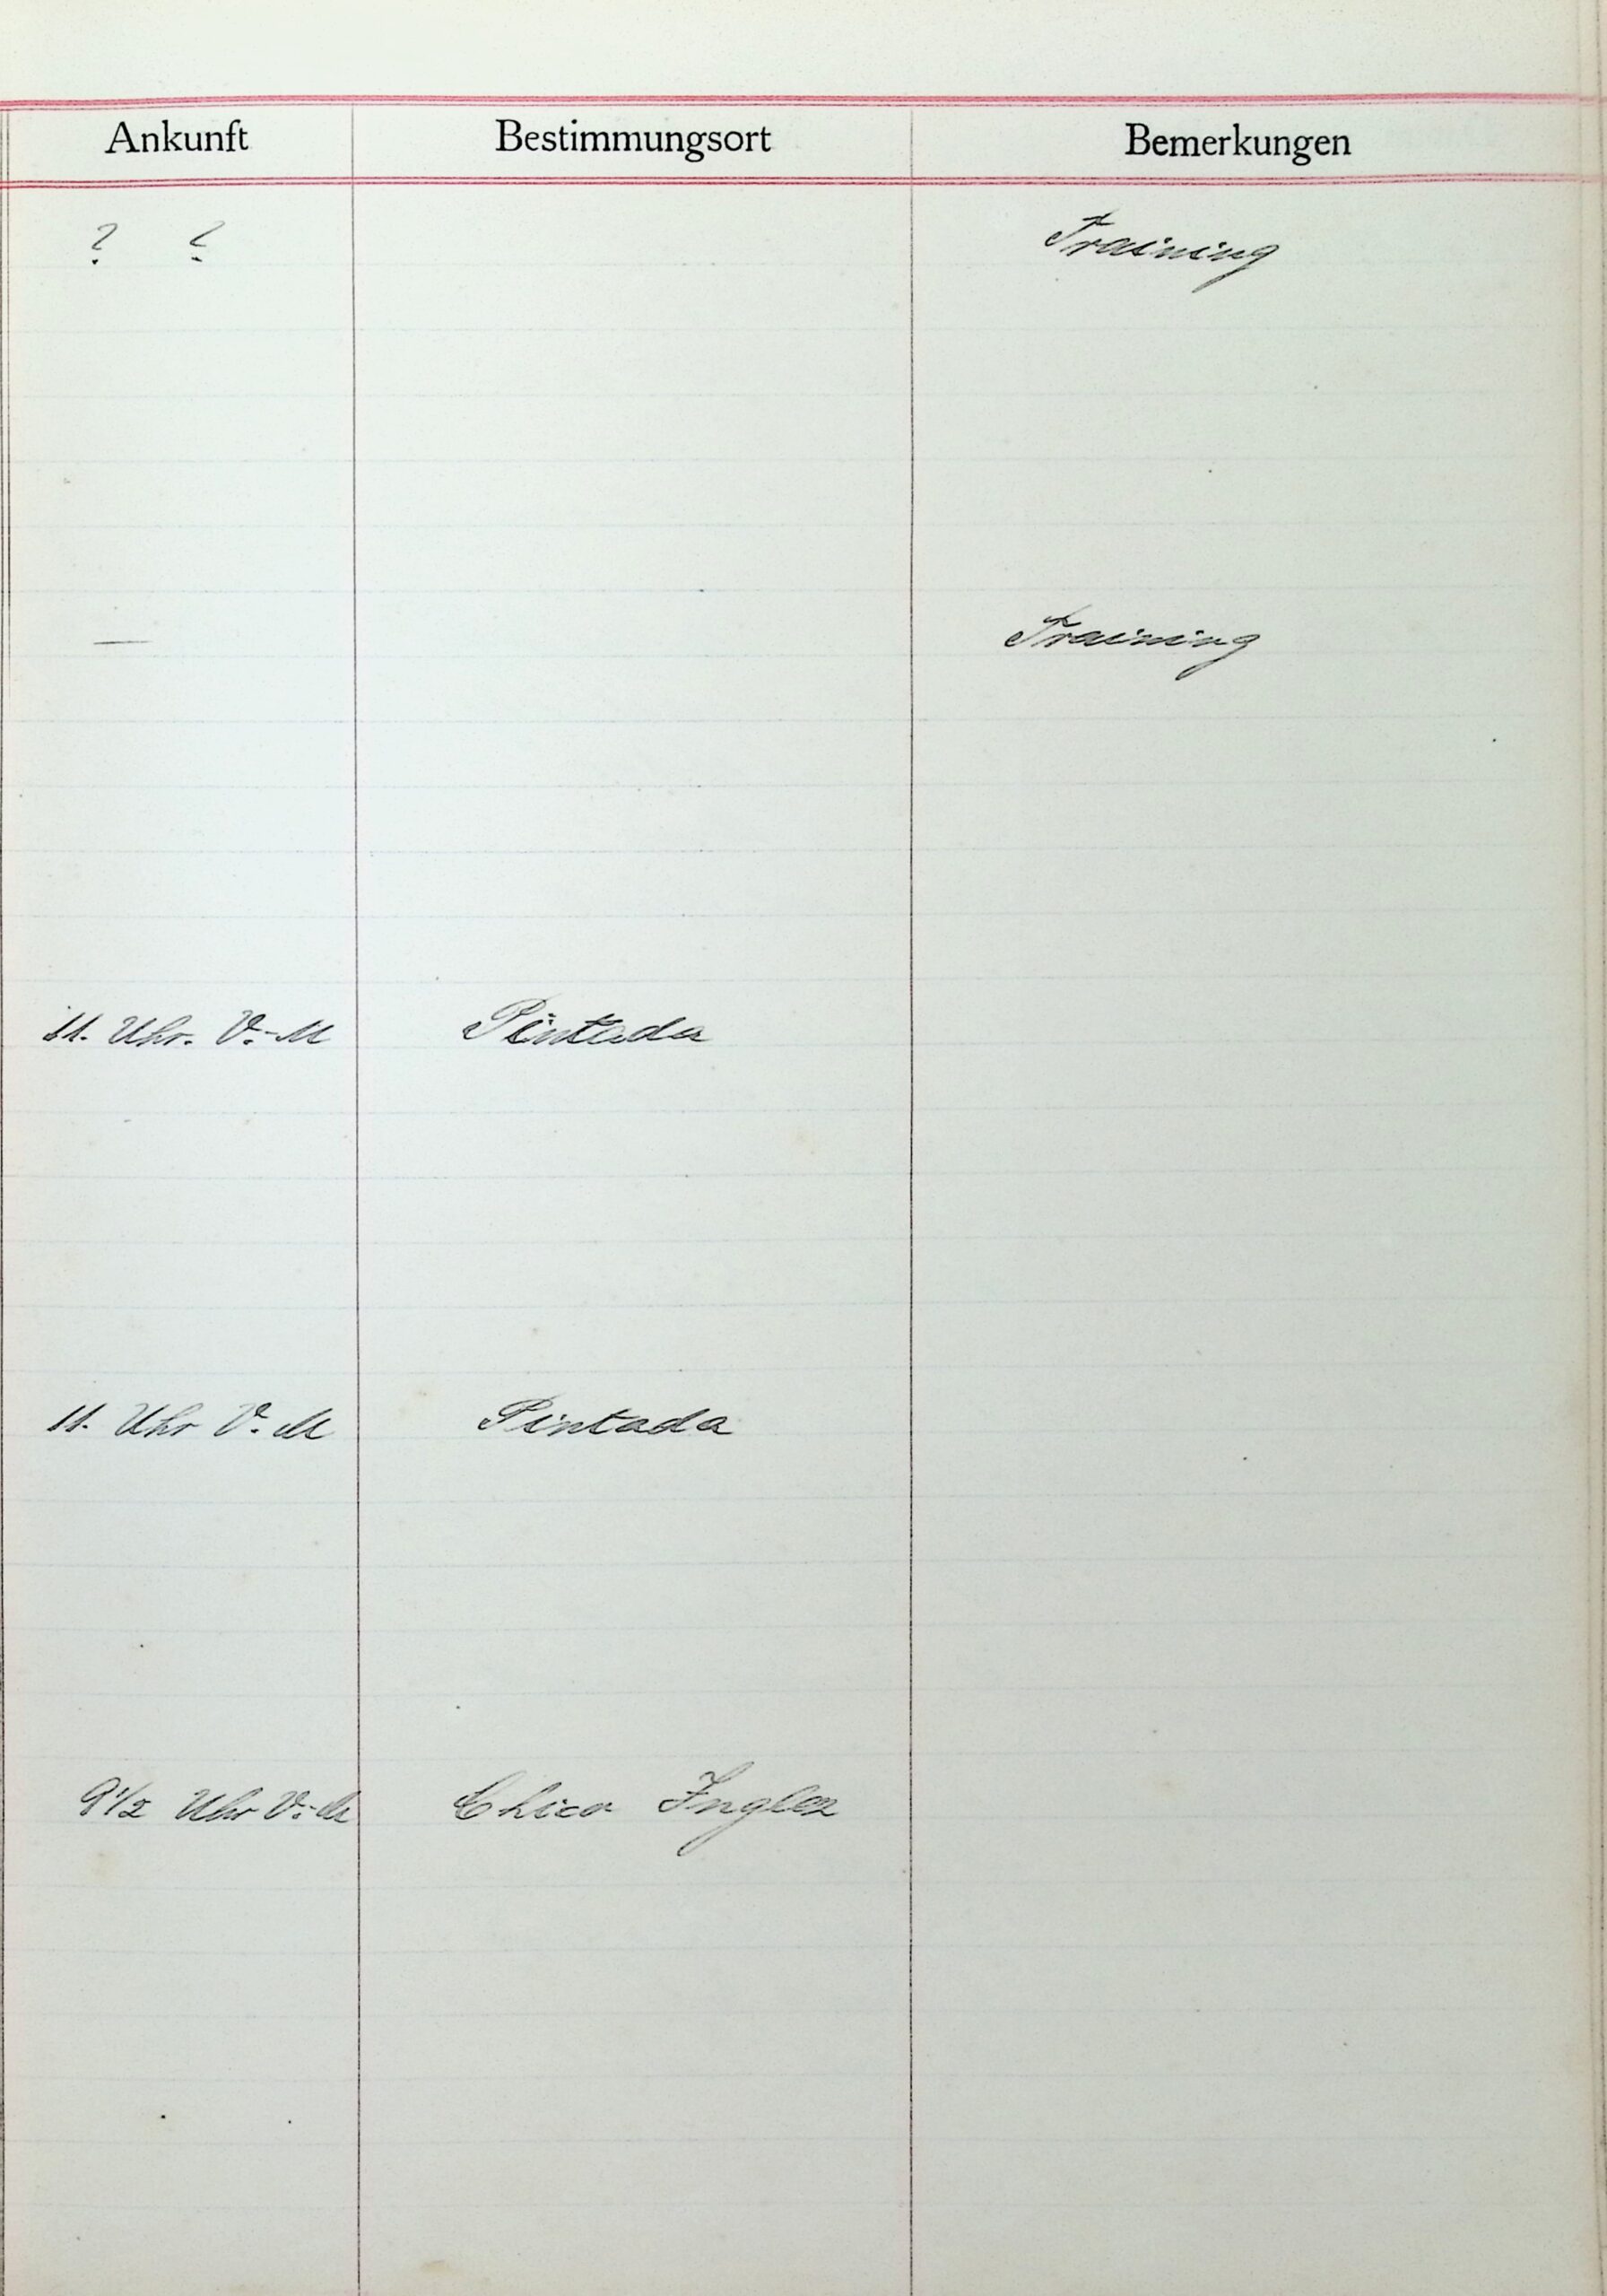 Ankunft Bestimmungsort Bemerkungen
? ? Training
— Training
11. Uhr. V.-M Pintada
11. Uhr V. M Pintada
9 1/2 Uhr V.-M Chico Inglez